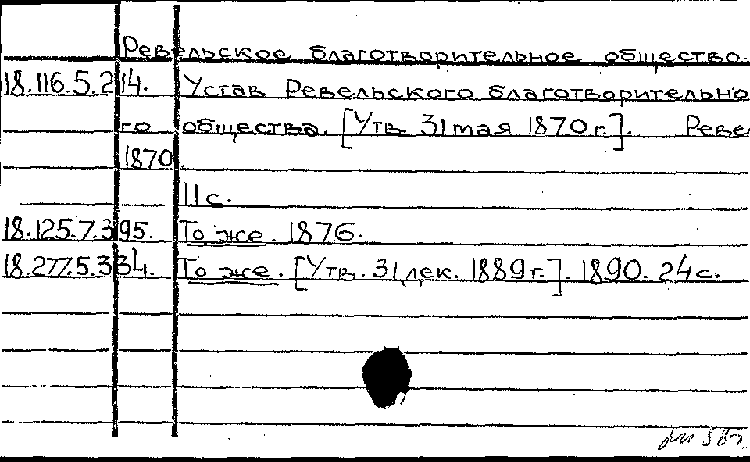 Ревельское благотворительное общество.
18.116.5.214. Устав Ревельского благотворительно
го общества. [Утв. 31 мая 1870 г.]. Реве
1870
11 с.
18.125.7.395. То же. 1876.
18.277.5.334. То же. [Утв. 31 дек. 1889 г.]. 1890. 24 с.